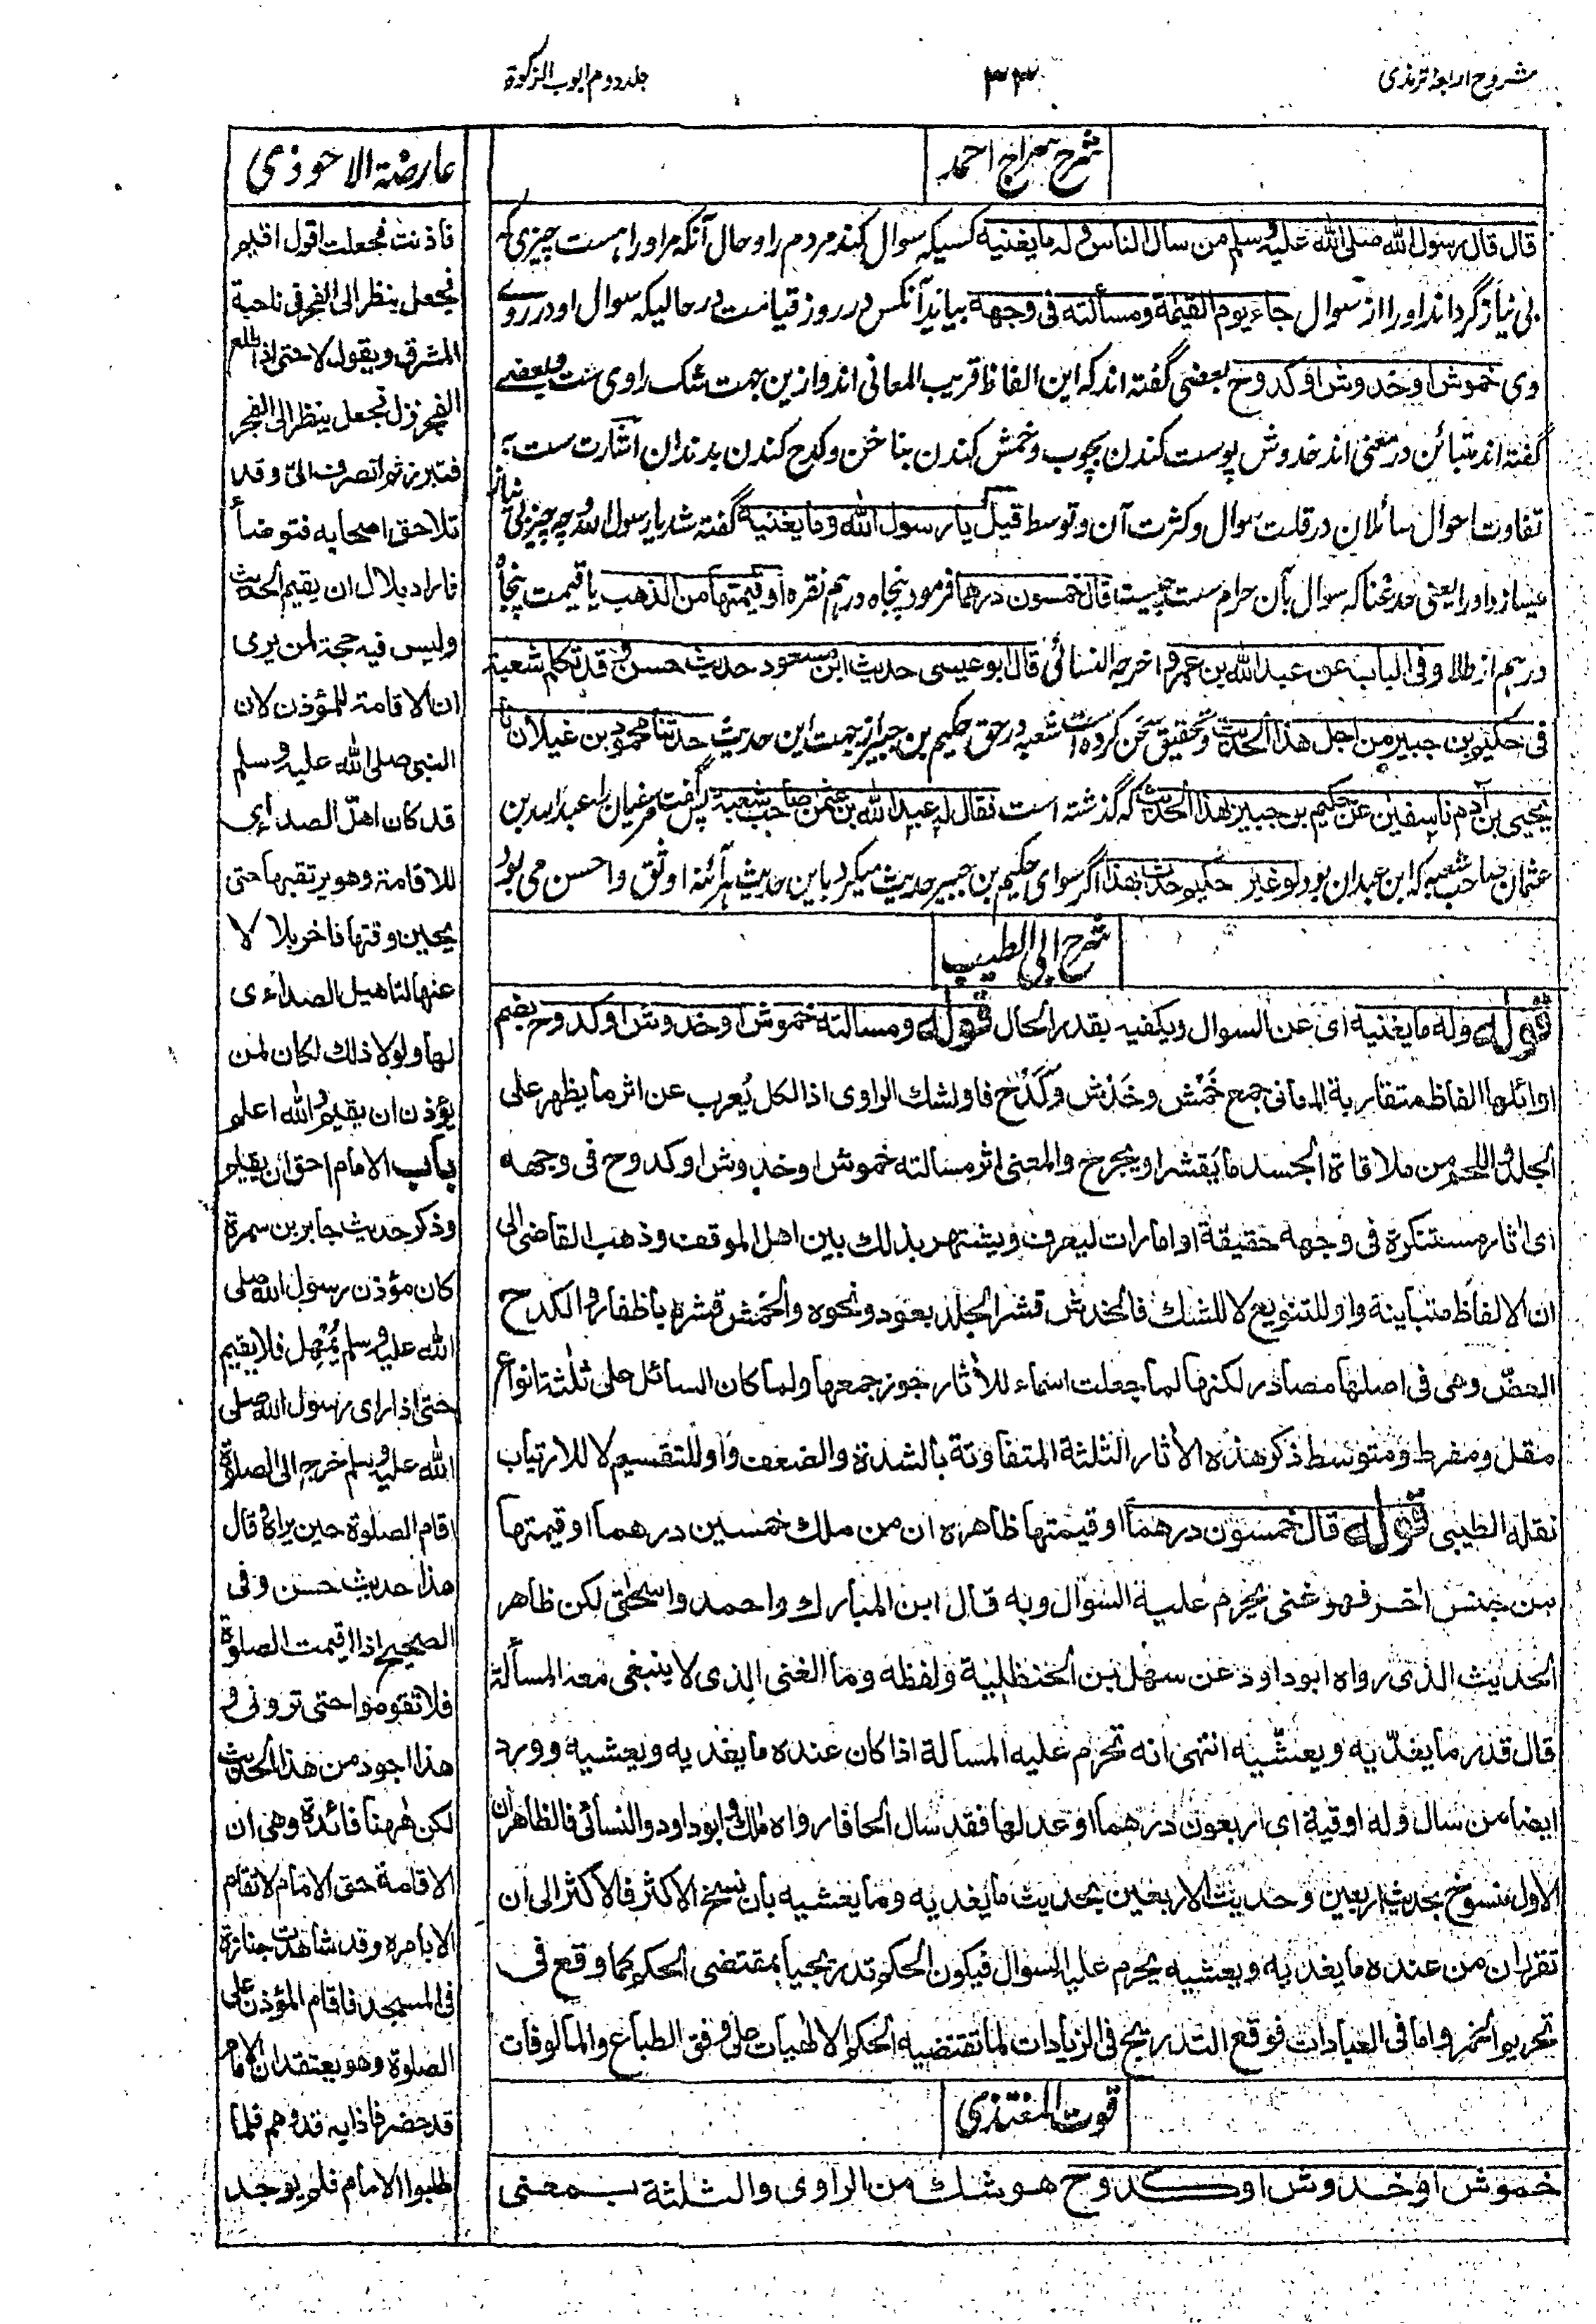 شروح اربعۂ ترمذی
۳۳
جلد دوم ابواب الزکوٰة
شرح سراج احمد
قال قال رسول الله صلى الله عليه وسلم من سال الناس وله ما يغنيه کسیکه سوال کند مردم را و حال آنکه مر او را هست چیزی که
بی نیاز گرداند او را از سوال جاء يوم القيمة ومسألته في وجهه بیاید آنکس در روز قیامت در حالیکه سوال او در روے
وی خموش او خدوش او كدوح بعضی گفته اند که این الفاظ قریب المعانی اند و ازین جهت شک راوی ست و بعضے
گفته اند متبائن در معنی اند خدوش پوست کندن بچوب و خمش کندن بناخن و کدح کندن بدندان اشارت ست به
تفاوت احوال سائلان در قلت سوال و کثرت آن و توسط قيل يا رسول الله وما يغنيه گفته شد یا رسول الله چه چیز بی نیاز
میسازد او را یعنی حد غنا که سوال بآن حرام ست چیست قال خمسون درهما فرمود پنجاه درهم نقره او قيمتها من الذهب یا قیمت پنجاه
درهم از طلا وفي الباب عن عبد الله بن عمرو اخرجه النسائي قال ابو عيسى حديث ابن مسعود حديث حسن وقد تكلم شعبة
في حكيم بن جبير من اجل هذا الحديث و تحقیق سخن کرده است شعبه در حق حکیم بن جبیر از جهت این حدیث حدثنا محمود بن غيلان نا
يحيى بن آدم نا سفين عن حكيم بن جبير بهذا الحديث که گذشته است فقال له عبد الله بن عثمن صاحب شعبة پس گفت مر سفیان را عبد الله بن
عثمان صاحب شعبه که ابن عبدان بود لو غير حكيم حدث بهذا اگر سوای حکیم بن جبیر حدیث میکرد باین حدیث هرآئنه اوثق و احسن می بود
شرح ابی الطیب
قوله وله ما يغنيه اى عن السوال ويكفيه بقدر الحال قوله ومسالته خموش او خدوش او كدوح بضم
اوائلها الفاظ متقاربة المعانى جمع خَمْش وخَدْش وكَدْح فاو لشك الراوى اذ الكل يُعرب عن اثر ما يظهر على
الجلد واللحم من ملاقاة الجسد ما يقشر او يجرح والمعنى اثر مسالته خموش او خدوش او كدوح فى وجهه
اى اثار مستنكرة فى وجهه حقيقة او امارات ليعرف ويشتهر بذلك بين اهل الموقف وذهب القاضى الى
ان الالفاظ متباينة واو للتنويع لا للشك فالخدش قشر الجلد بعود ونحوه والخمش قشره باظفار والكدح
العضّ وهى فى اصلها مصادر لكنها لما جعلت اسماء للأثار جوز جمعها ولما كان السائل على ثلثة انواع
مقل ومفرط ومتوسط ذكر هذه الأثار الثلثة المتفاوتة بالشدة والضعف واو للتقسيم لا للارتياب
نقله الطيبى قوله قال خمسون درهما او قيمتها ظاهره ان من ملك خمسين درهما او قيمتها
من جنس اخر فهو غنى يحرم عليه السوال وبه قال ابن المبارك واحمد واسحٰق لكن ظاهر
الحديث الذى رواه ابو داود عن سهل بن الحنظلية ولفظه وما الغنى الذى لا ينبغى معه المسألة
قال قدر ما يغدّيه ويعشّيه انتهى انه تحرم عليه المسالة اذا كان عنده ما يغديه ويعشيه وورد
ايضا من سال وله اوقية اى اربعون درهما او عدلها فقد سال الحافا رواه مٰلك وابو داود والنسائى فالظاهر ان
الاول منسوخ بحديث اربعين وحديث الاربعين بحديث ما يغديه وما يعشيه بان نسخ الاكثر فالاكثر الى ان
تقرر ان من عنده ما يغديه ويعشيه يحرم عليه السوال فيكون الحكم تدريجيا بمقتضى الحكم كما وقع فى
تحريم الخمر واما فى العبادات فوقع التدريج فى الزيادات لما تقتضيه الحكم الالٰهيات على وفق الطباع والمالوفات
قوت المغتذی
خموش او خدوش او كدوح هو شك من الراوى والثلثة بمعنى
عارضة الاحوذی
فاذنت فجعلت اقول اقيم
فجعل ينظر الى الفجر فى ناحية
المشرق ويقول لا حتى اذا طلع
الفجر نزل فجعل ينظر الى الفجر
فتبرز ثم انصرف الىّ وقد
تلاحق اصحابه فتوضأ
فاراد بلال ان يقيم الحديث
وليس فيه حجة لمن يرى
ان الاقامة للمؤذن لان
النبى صلى الله عليه وسلم
قد كان اهّل الصدائى
للاقامة وهو يرتقبها حتى
يحين وقتها فاخر بلالا
عنها لتاهيل الصداءى
لها ولولا ذلك لكان لمن
يؤذن ان يقيم والله اعلم
باب الامام احق ان يقام
وذكر حديث جابر بن سمرة
كان مؤذن رسول الله صلى
الله عليه وسلم يُمْهِل فلا يقيم
حتى اذا راى رسول الله صلى
الله عليه وسلم خرج الى الصلوة
اقام الصلوة حين يراه وقال
هذا حديث حسن وفى
الصحيح اذا اقيمت الصلوة
فلا تقوموا حتى ترونى و
هذا اجود من هذا الحديث
لكن هٰهنا فائدة وهى ان
الاقامة حق الامام لا تقام
الا بامره وقد شاهدت جنازة
فى المسجد فاقام المؤذن على
الصلوة وهو يعتقد ان الامام
قد حضر فاذا به قد وهم فلما
طلبوا الامام فلم يوجد